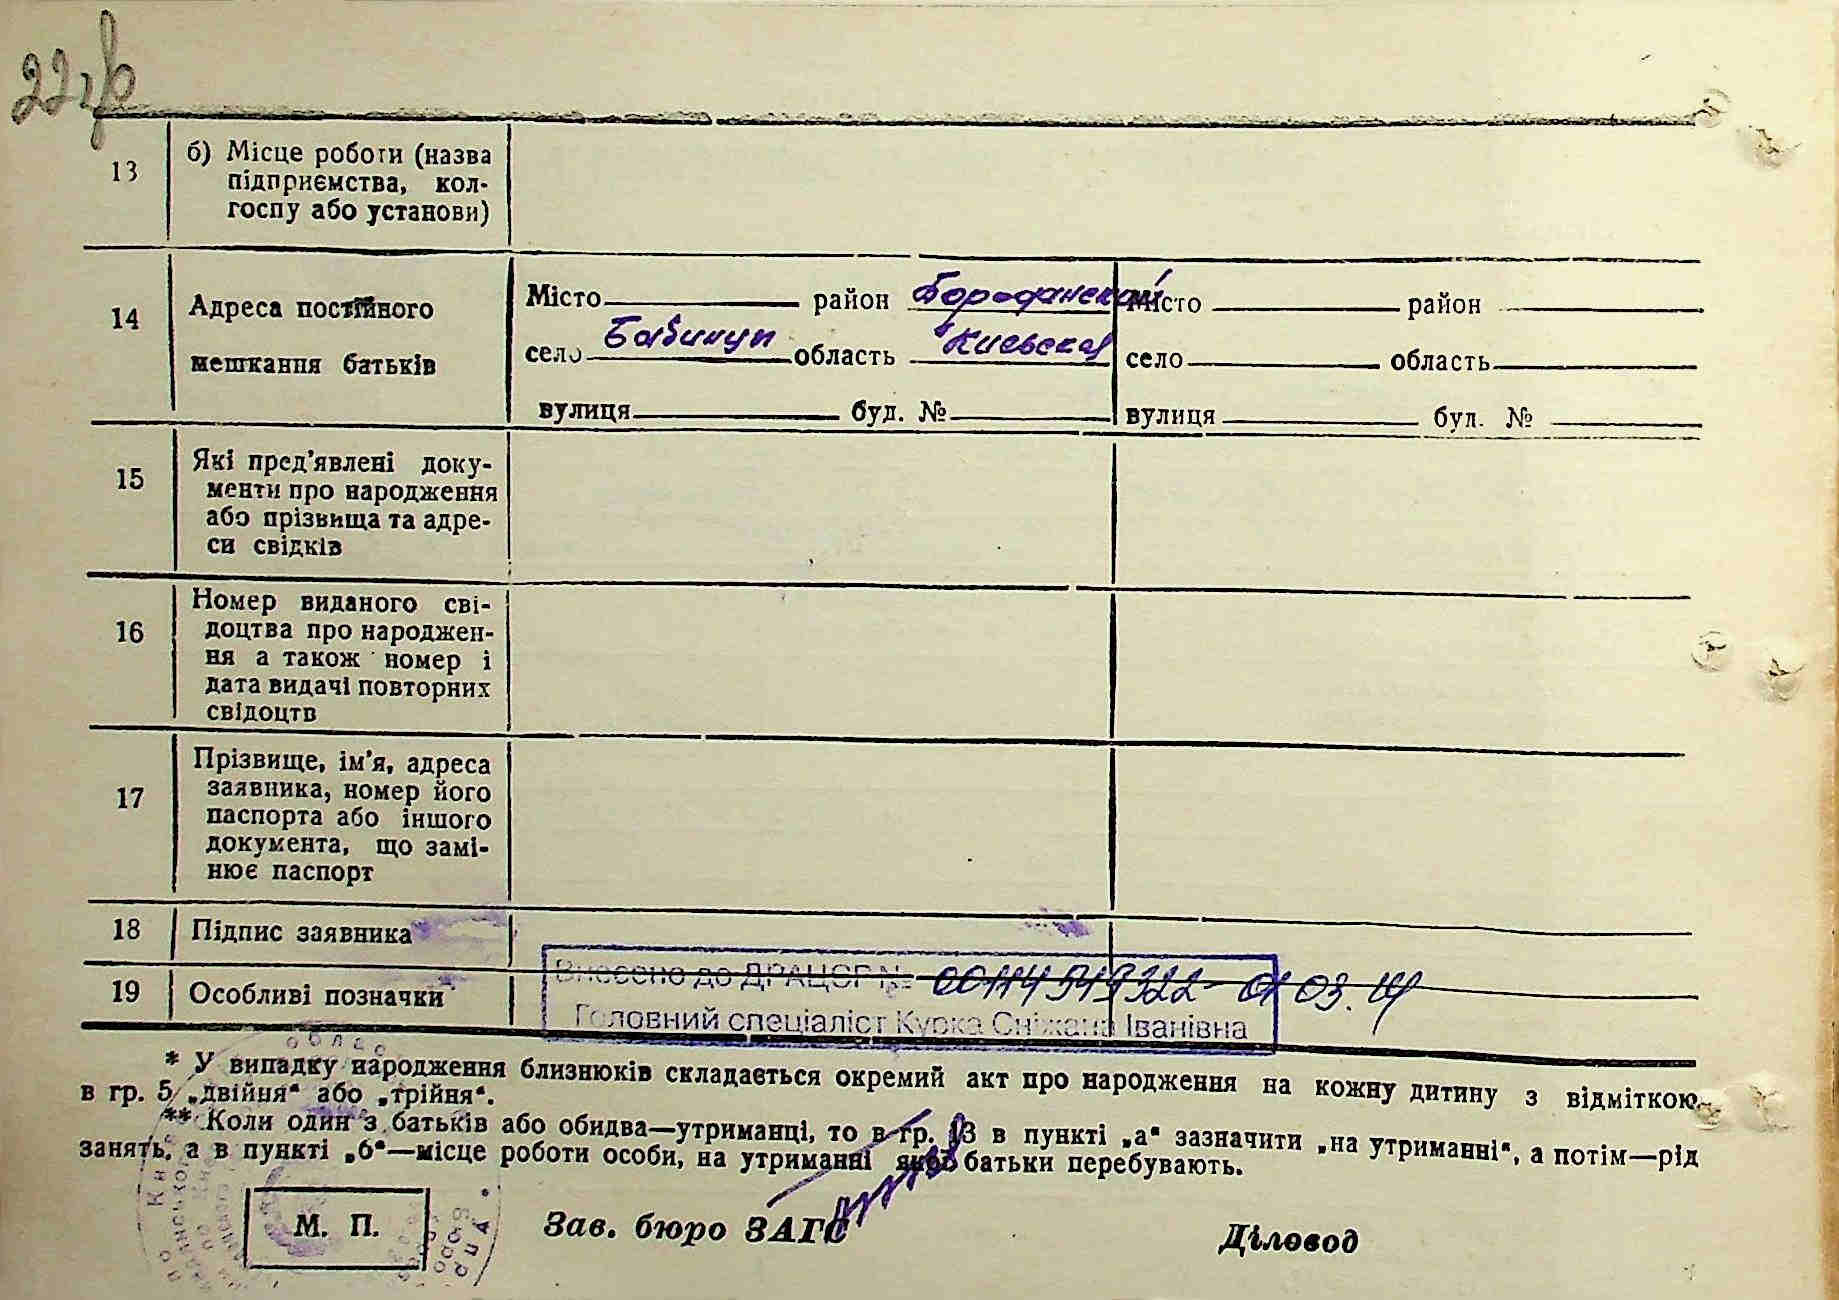 22зв
13 б) Місце роботи (назва
підприємства, кол-
госпу або установи)
14 Адреса постійного
мешкання батьків
Місто район Бородянский Місто район
село Бабинцы область Киевская село область
вулиця буд. № вулиця буд. №
15 Які пред’явлені доку-
менти про народження
або прізвища та адре-
си свідків
16 Номер виданого сві-
доцтва про народжен-
ня а також номер і
дата видачі повторних
свідоцтв
17 Прізвище, ім’я, адреса
заявника, номер його
паспорта або іншого
документа, що замі-
нює паспорт
18 Підпис заявника
19 Особливі позначки
Внесено до ДРАЦСГ № 00114919322 01 03.
Головний спеціаліст Курка Сніжана Іванівна
* У випадку народження близнюків складається окремий акт про народження на кожну дитину з відміткою
в гр. 5 „двійня“ або „трійня“.
** Коли один з батьків або обидва—утриманці, то в гр. 13 в пункті „а“ зазначити „на утриманні“, а потім—рід
занять, а в пункті „б“—місце роботи особи, на утриманні якої батьки перебувають.
М. П. Зав. бюро ЗАГС Діловод